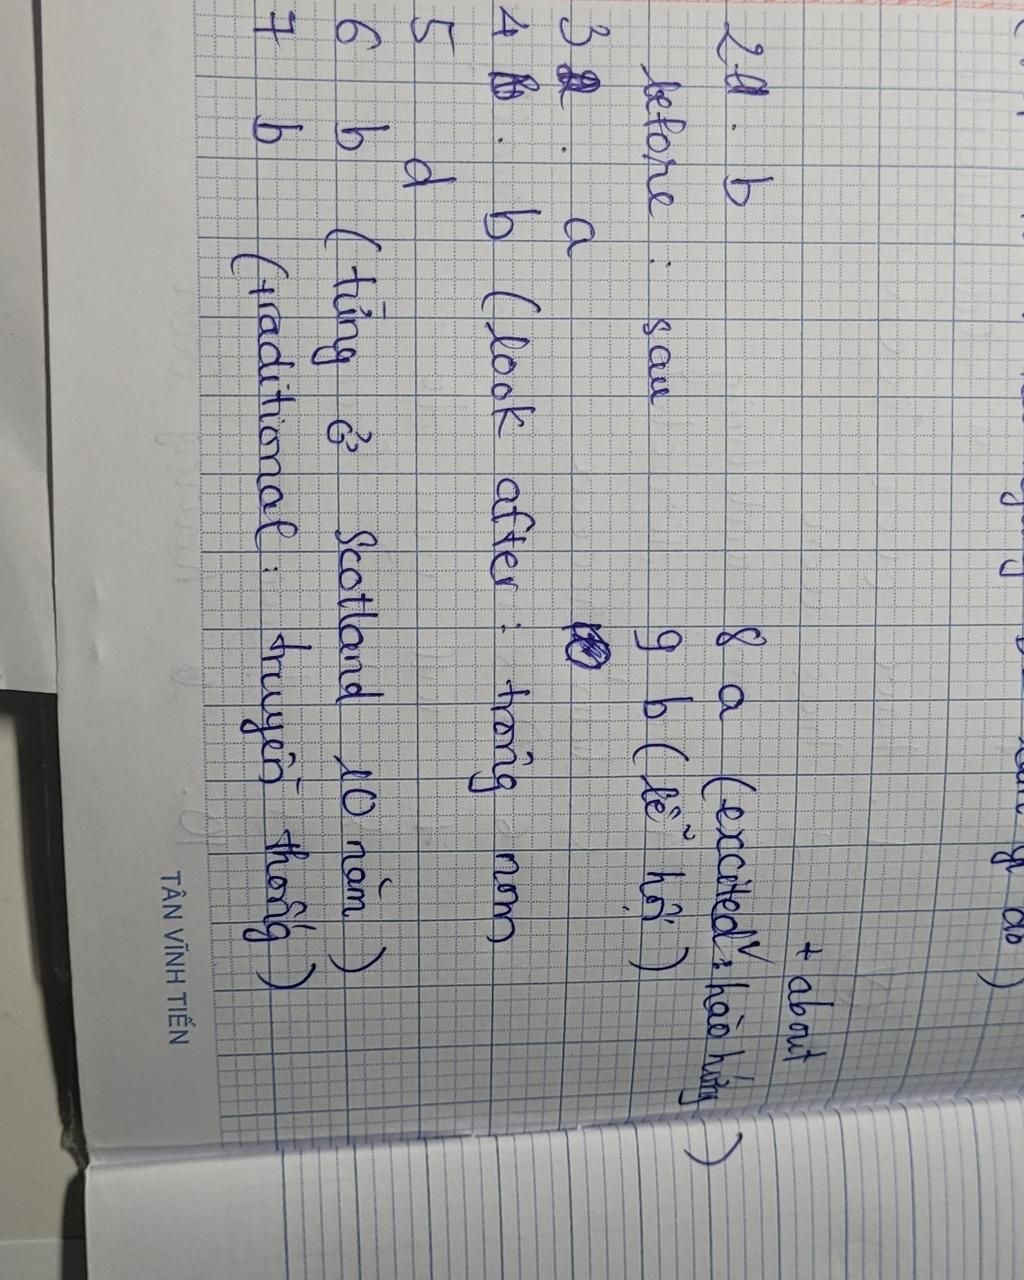 2 . b
before : sau
3 . a
4 . b (look after : trông nom
5 d
6 b (từng ở Scotland 10 năm)
7 b (traditional : truyền thống)
+ about
8 a (excited : hào hứng)
9 b (lễ hội)
TÂN VĨNH TIẾN